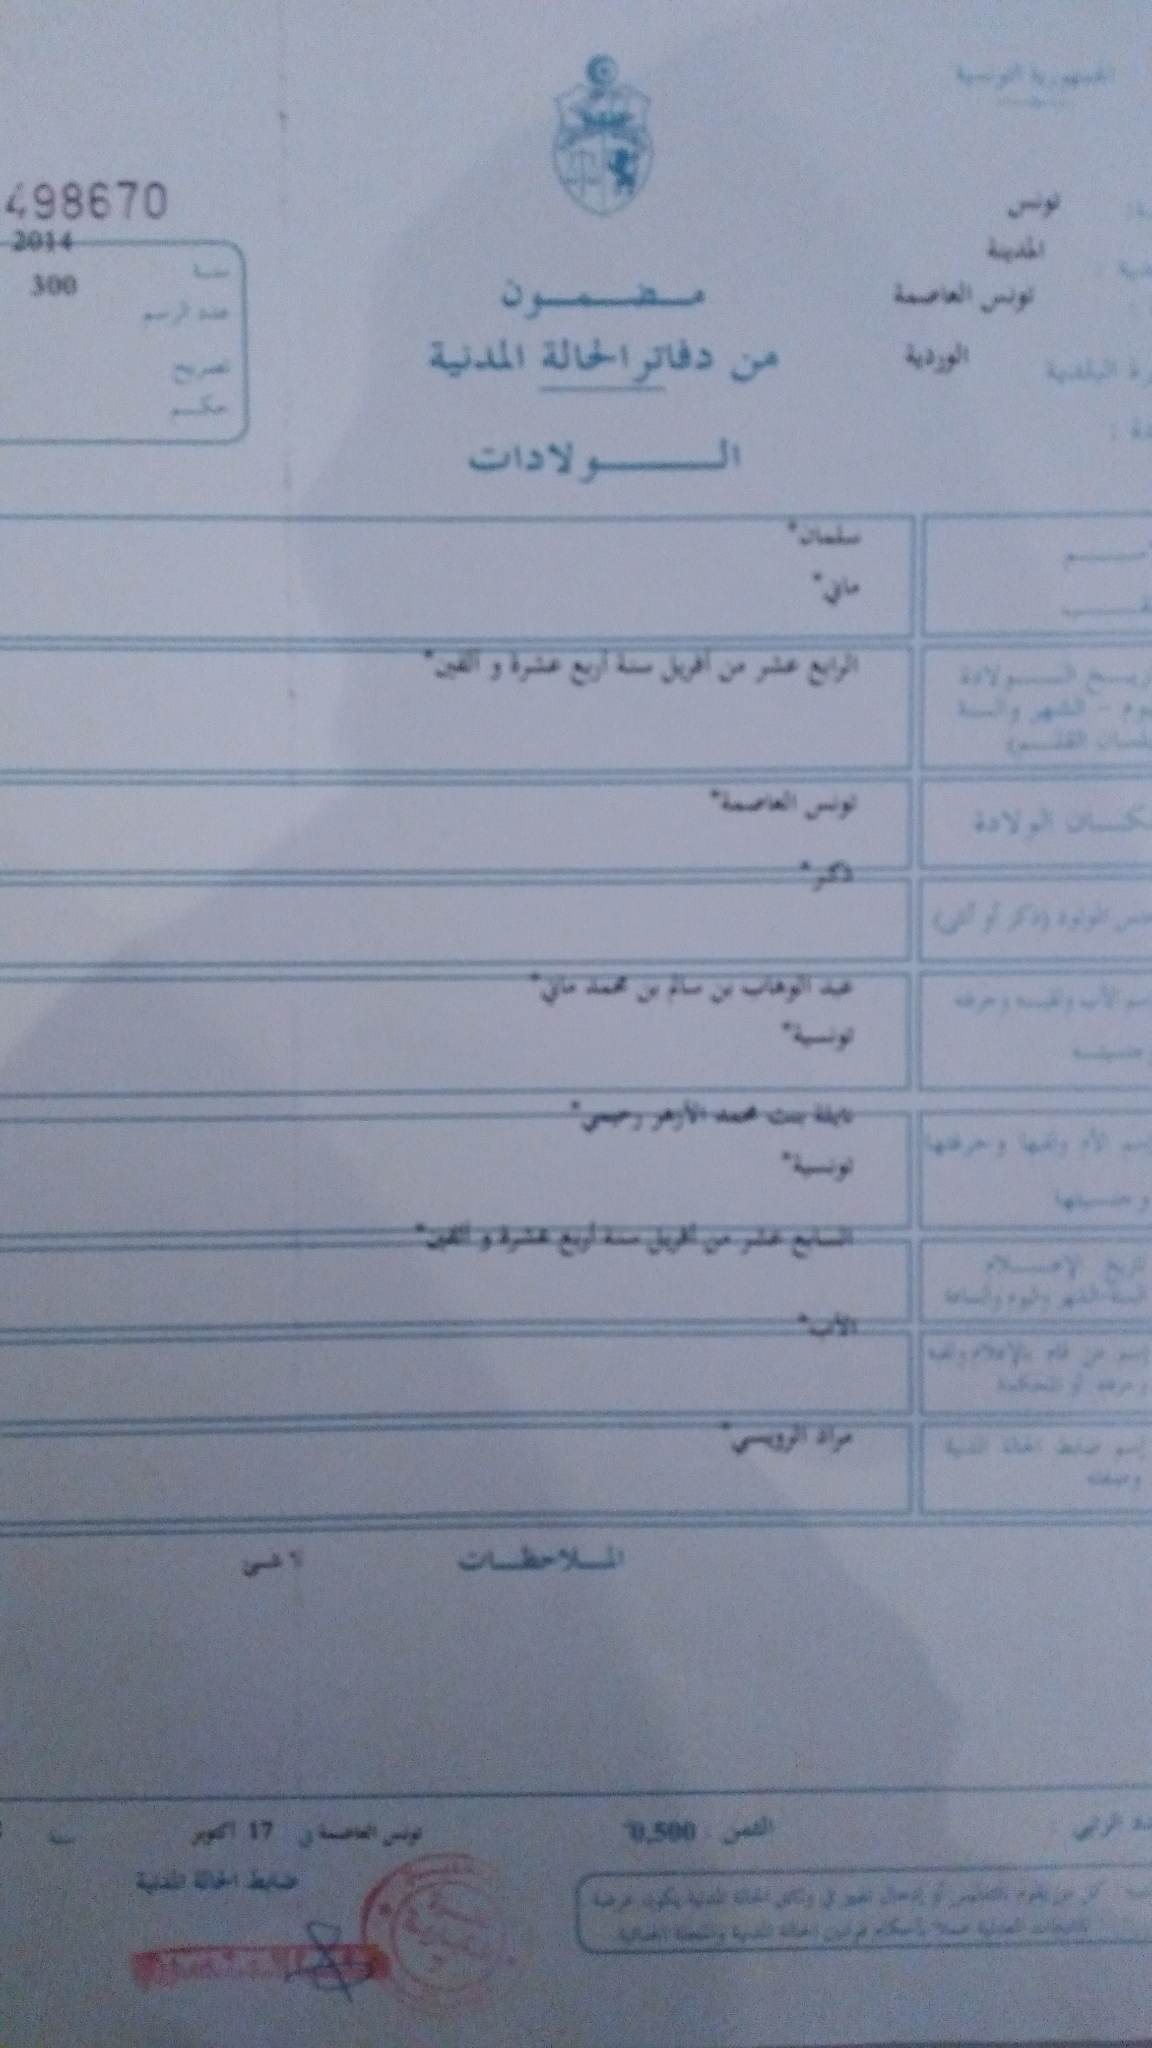 الجمهورية التونسية
تونس
المدينة
تونس العاصمة
الوردية
498670
سنة 2014
عدد الرسم 300
تصريح
حكم
مضمون
من دفاتر الحالة المدنية
الولادات
سلمان*
ماني*
الرابع عشر من أفريل سنة أربع عشرة و ألفين*
الولادة
الشهر والسنة
بلسان القلم)
تونس العاصمة*
الولادة
ذكر*
المولود (ذكر أو أنثى)
عبد الوهاب بن سالم بن محمد ماني*
إسم الأب ولقبه وحرفته
وجنسيته
تونسية*
نايلة بنت محمد الأزهر رحيمي*
إسم الأم ولقبها وحرفتها
وجنسيتها
تونسية*
السابع عشر من أفريل سنة أربع عشرة و ألفين*
تاريخ الإعلام
السنة-الشهر واليوم والساعة
الأب*
إسم من قام بالإعلام ولقبه
وحرفته أو المحكمة
مراد الرويسي*
إسم ضابط الحالة المدنية
وصفته
الملاحظات
لا شئ
الثمن : 0,500
تونس العاصمة في 17 أكتوبر
ضابط الحالة المدنية
كل من يقوم بالتدليس أو إدخال تغيير في وثائق الحالة المدنية يكون عرضة